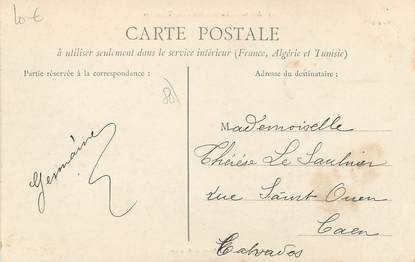 10-€
CARTE POSTALE
à utiliser seulement dans le service intérieur (France, Algérie et Tunisie)
Partie réservée à la correspondance :
Adresse du destinataire :
88
Germaine
Mademoiselle
Thérèse Le Saulnier
rue Saint Ouen
Caen
Calvados